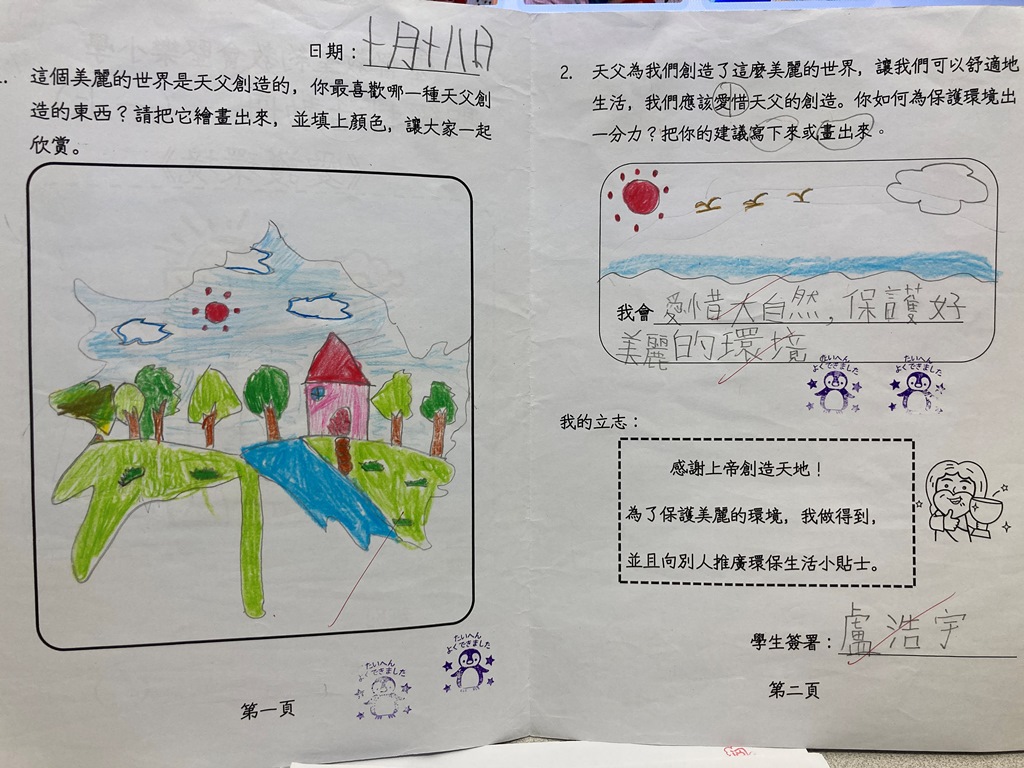 日期：十月十八日
這個美麗的世界是天父創造的，你最喜歡哪一種天父創
造的東西？請把它繪畫出來，並填上顏色，讓大家一起
欣賞。
たいへん
よくできました
たいへん
よくできました
第一頁
2. 天父為我們創造了這麼美麗的世界，讓我們可以舒適地
生活，我們應該愛惜天父的創造。你如何為保護環境出
一分力？把你的建議寫下來或畫出來。
我會愛惜大自然,保護好
美麗的環境
たいへん
よくできました
たいへん
よくできました
我的立志：
感謝上帝創造天地！
為了保護美麗的環境，我做得到，
並且向別人推廣環保生活小貼士。
學生簽署：盧浩宇
第二頁